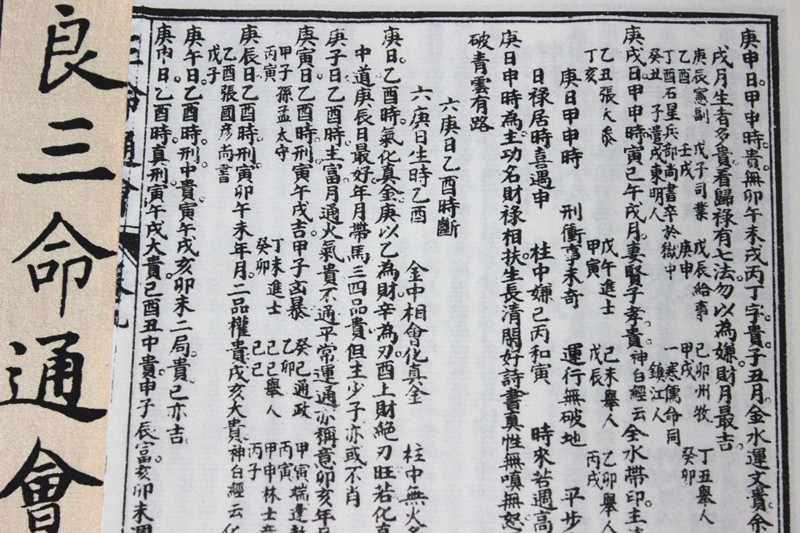 庚申日甲申時貴無卯午未戌丙丁字貴子丑月金水運文貴余
戌月生者多貴看歸祿有七法勿以為嫌財月最吉
庚辰憲副 戊子司業 戊辰給事 己卯州牧 丁丑舉人
乙酉 壬戌 庚申 甲戌 癸卯
丁酉石星兵部尚書卒於獄中 一寒儒命同
癸丑 子遣戍東明人 鎮江人
庚戌日甲申時寅己午戌月妻賢子孝貴神白經云金水帶印主
乙丑張大參 戊午進士 己未舉人 乙卯舉人
丁亥 甲寅 戊辰 丙戌
庚日甲申時 刑衝享未奇 運行無破地 平步
日祿居時喜遇申 柱中嫌己丙和寅 時來若遇高
庚日申時為主功名財祿相扶生長清閑好詩書真性無嗔無怒
破青雲有路
六庚日乙酉時斷
六庚日生時乙酉 金中相會化真金 柱中無火
庚日乙酉時氣化真金庚以乙為財辛為刃酉上財絕刃旺若化真
中道庚辰日最好年月帶馬三四品貴但主少子亦或不肖
庚子日乙酉時主富月通火氣貴不通平常運通亦稱意卯亥年
庚寅日乙酉時刑寅午戌吉甲子凶暴
甲子 孫孟太守 丁未進士 癸巳通政 甲寅
丙寅 癸卯 乙卯 丙寅
庚辰日乙酉時刑寅卯午未年月二品權貴戌亥大貴神白經云化
乙酉張國彥尚書 己巳舉人 甲申林士
戊子 己巳 丙子
庚午日乙酉時刑中貴寅午戌亥卯未二局貴已亦吉
庚申日乙酉時真刑寅午戌大貴己酉丑中貴申子辰富亥卯未
三命通會
卷九
良三命通會